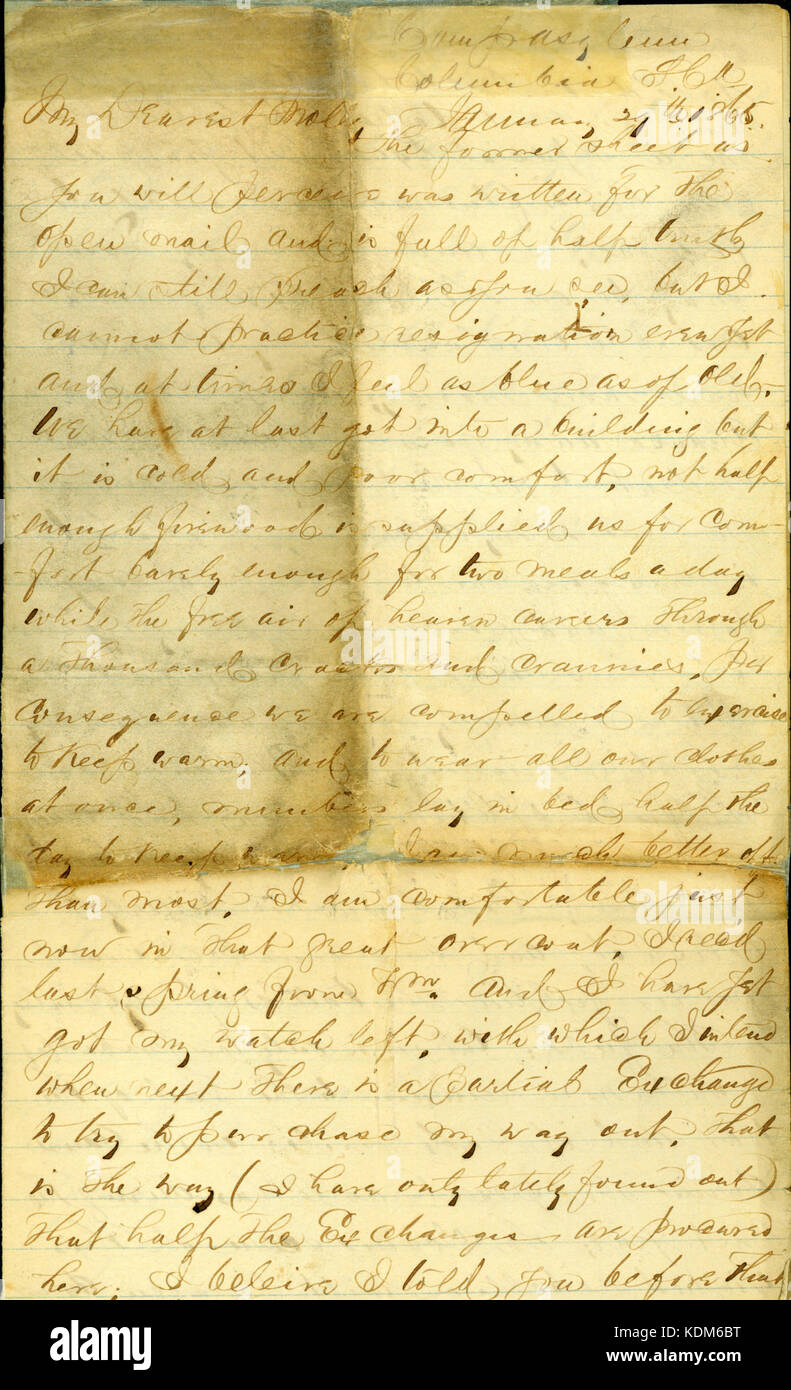 Camp Asylum
Columbia S.C.
My Dearest Molly, January 29th 1865.
The former sheet as
you will perceive was written for the
open mail and is full of half truth
I can still preach as you see, but I
cannot practice resignation even yet
and at times I feel as blue as of old.
We have at last got into a building but
it is cold and poor comfort, not half
enough firewood is supplied us for com-
-fort barely enough for two meals a day
while the free air of heaven careers through
a thousand cracks and crannies, per
consequence we are compelled to exercise
to keep warm, and to wear all our clothes
at once, numbers lay in bed half the
day to keep warm. I am much better off
than most, I am comfortable just
now in that great overcoat, I recd
last spring from Wm. and I have yet
got my watch left, with which I intend
when next there is a Partial Exchange
to try to purchase my way out, that
is the way (I have only lately found out)
that half the Exchanges are procured
here; I beleive I told you before that
alamy
Image ID: KDM6BT
www.alamy.com